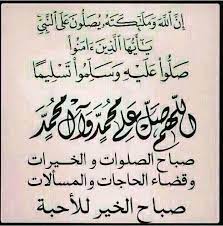 إِنَّ اللَّهَ وَمَلَٰئِكَتَهُ يُصَلُّونَ عَلَى النَّبِيِّ
يَا أَيُّهَا الَّذِينَ ءَامَنُوا
صَلُّوا عَلَيْهِ وَسَلِّمُوا تَسْلِيمًا
اللهم صل على محمد وآل محمد
صباح الصلوات و الخيرات
وقضاء الحاجات و المسألات
صباح الخير للأحبة